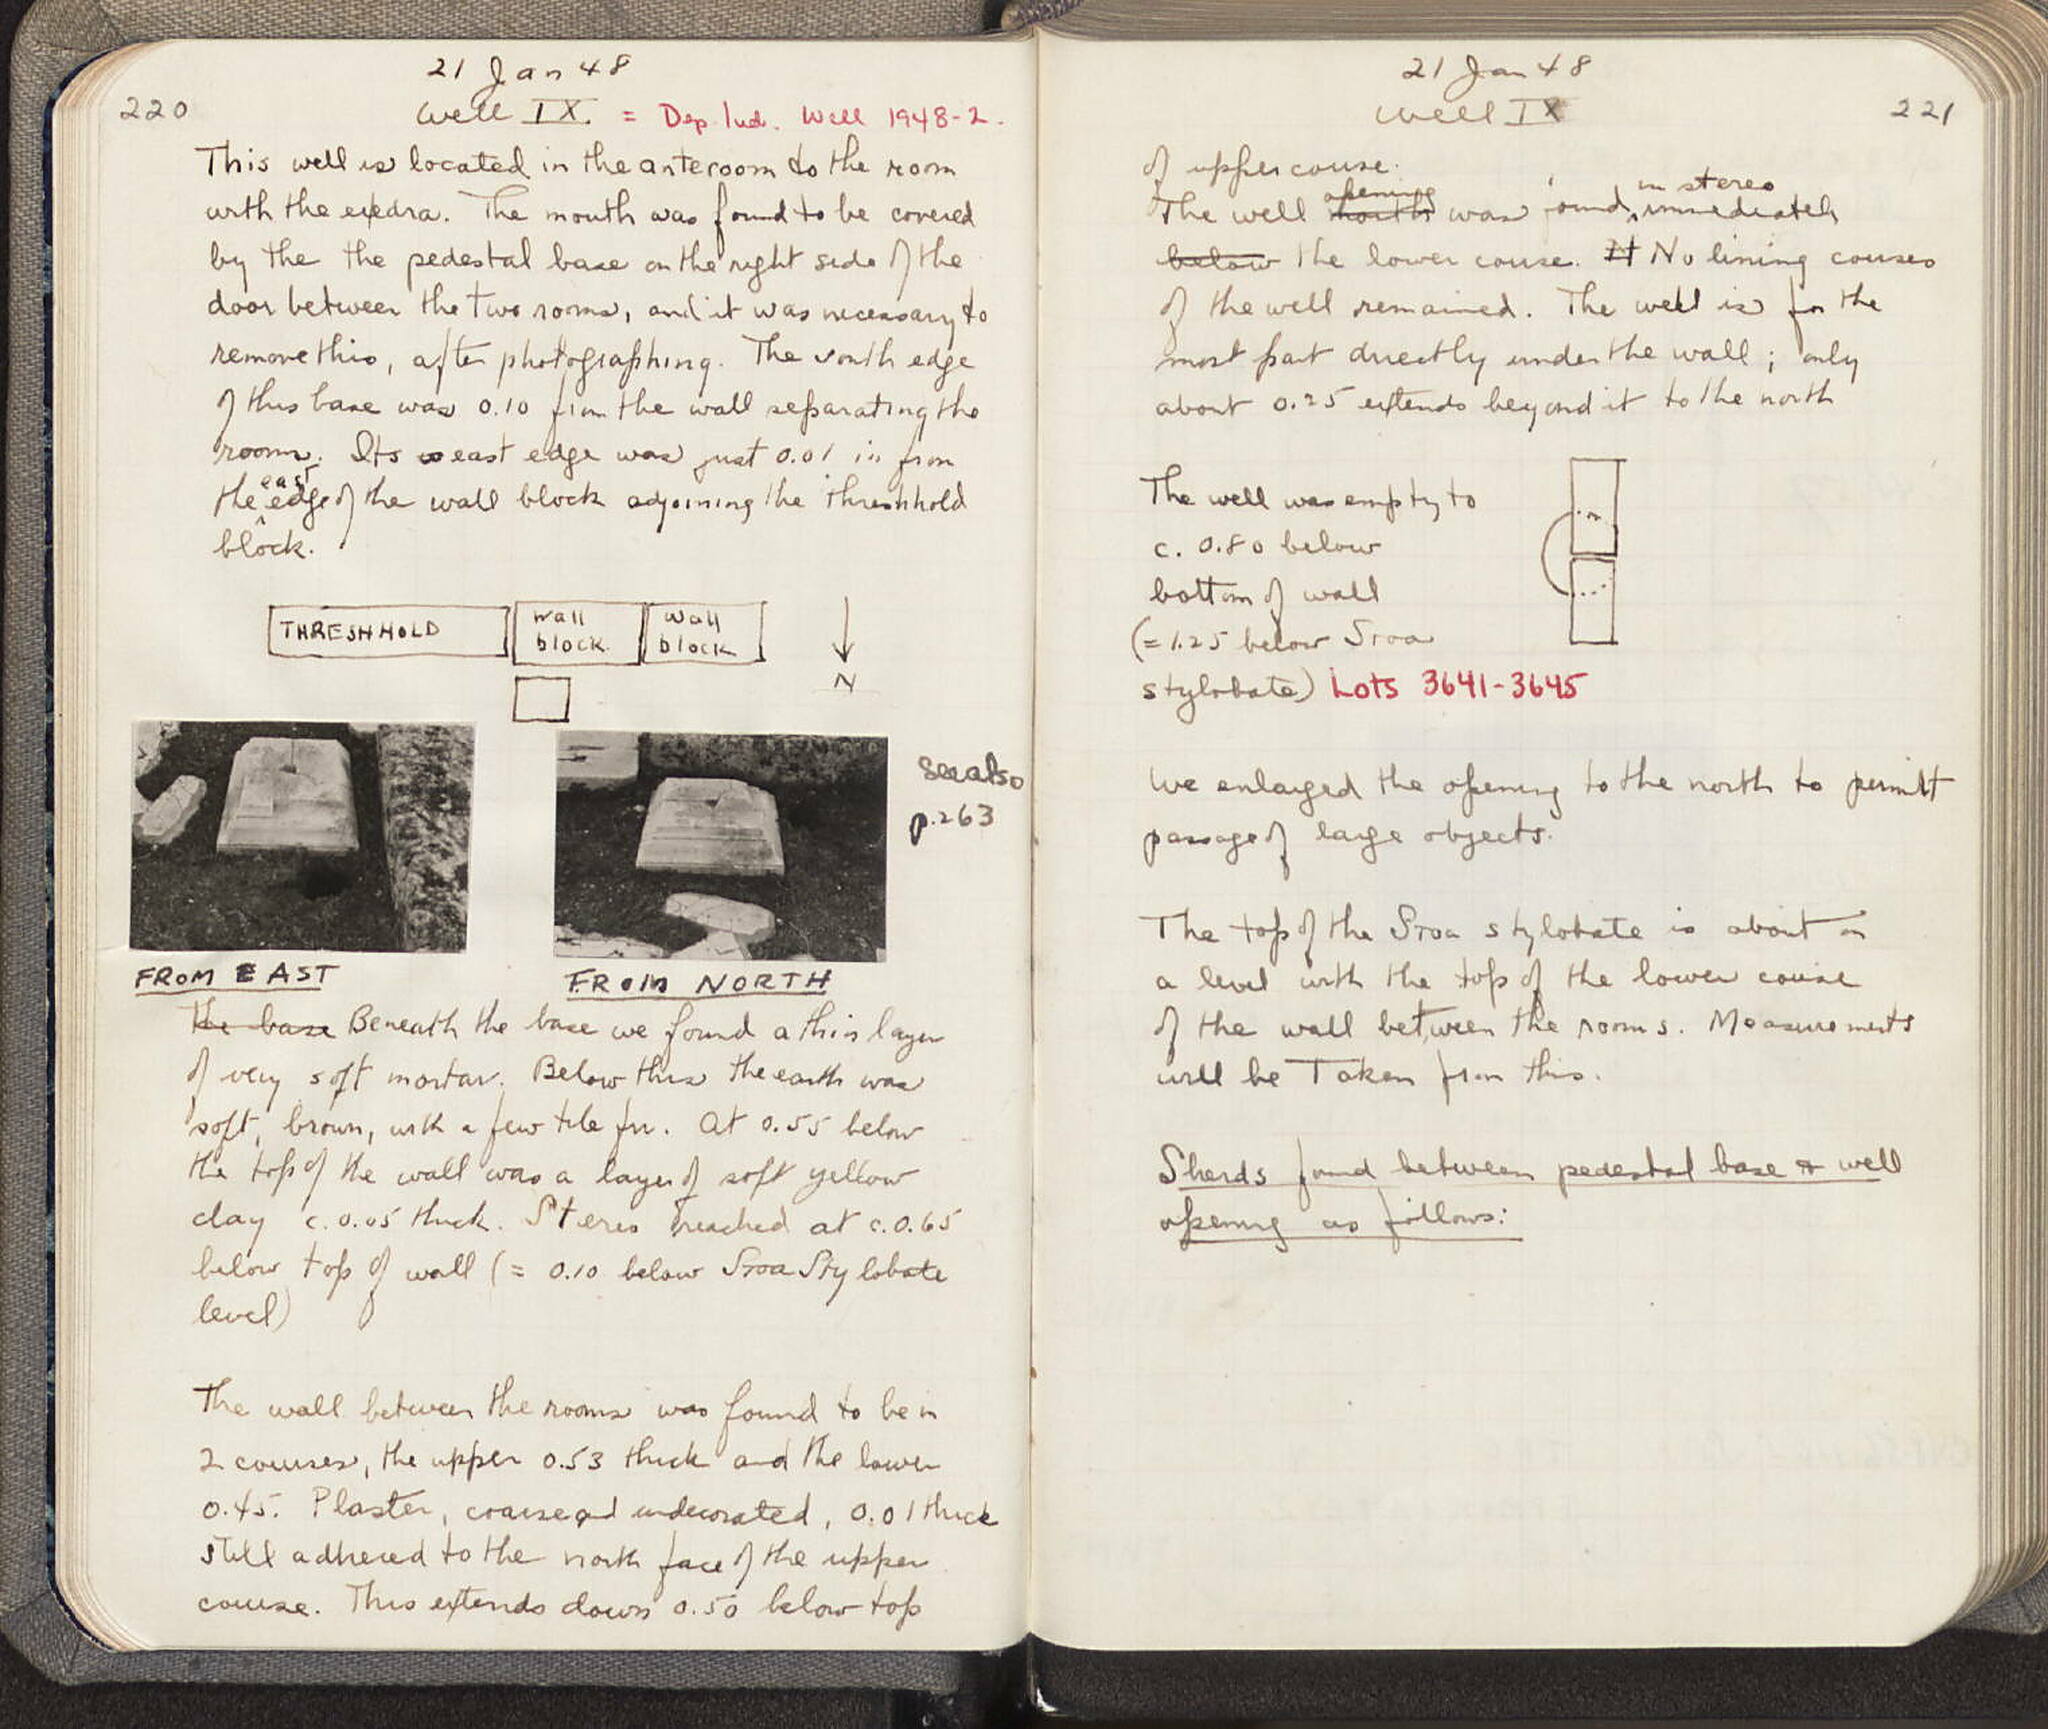 220
21 Jan 48
Well IX. = Dep. Ind. Well 1948-2.
This well is located in the anteroom to the room
with the exedra. The mouth was found to be covered
by the the pedestal base on the right side of the
door between the two rooms, and it was necessary to
remove this, after photographing. The south edge
of this base was 0.10 from the wall separating the
rooms. Its east edge was just 0.01 in from
the east edge of the wall block adjoining the threshhold
block.
THRESHHOLD
wall block
wall block
N
see also
p. 263
FROM EAST
FROM NORTH
the base Beneath the base we found a thin layer
of very soft mortar. Below this the earth was
soft, brown, with a few tile frr. At 0.55 below
the top of the wall was a layer of soft yellow
clay c. 0.05 thick. Stereo reached at c. 0.65
below top of wall (= 0.10 below Stoa Stylobate
level)
The wall between the rooms was found to be in
2 courses, the upper 0.53 thick and the lower
0.45. Plaster, coarse and undecorated, 0.01 thick
still adhered to the north face of the upper
course. This extends down 0.50 below top
21 Jan 48
Well IX
221
of upper course.
The well mouth opening was found, in stereo immediately
below the lower course. It No lining courses
of the well remained. The well is for the
most part directly under the wall; only
about 0.25 extends beyond it to the north
The well was empty to
c. 0.80 below
bottom of wall
(= 1.25 below Stoa
stylobate) Lots 3641-3645
We enlarged the opening to the north to permit
passage of large objects.
The top of the Stoa stylobate is about on
a level with the top of the lower course
of the wall between the rooms. Measurements
will be Taken from this.
Sherds found between pedestal base & well
opening as follows: